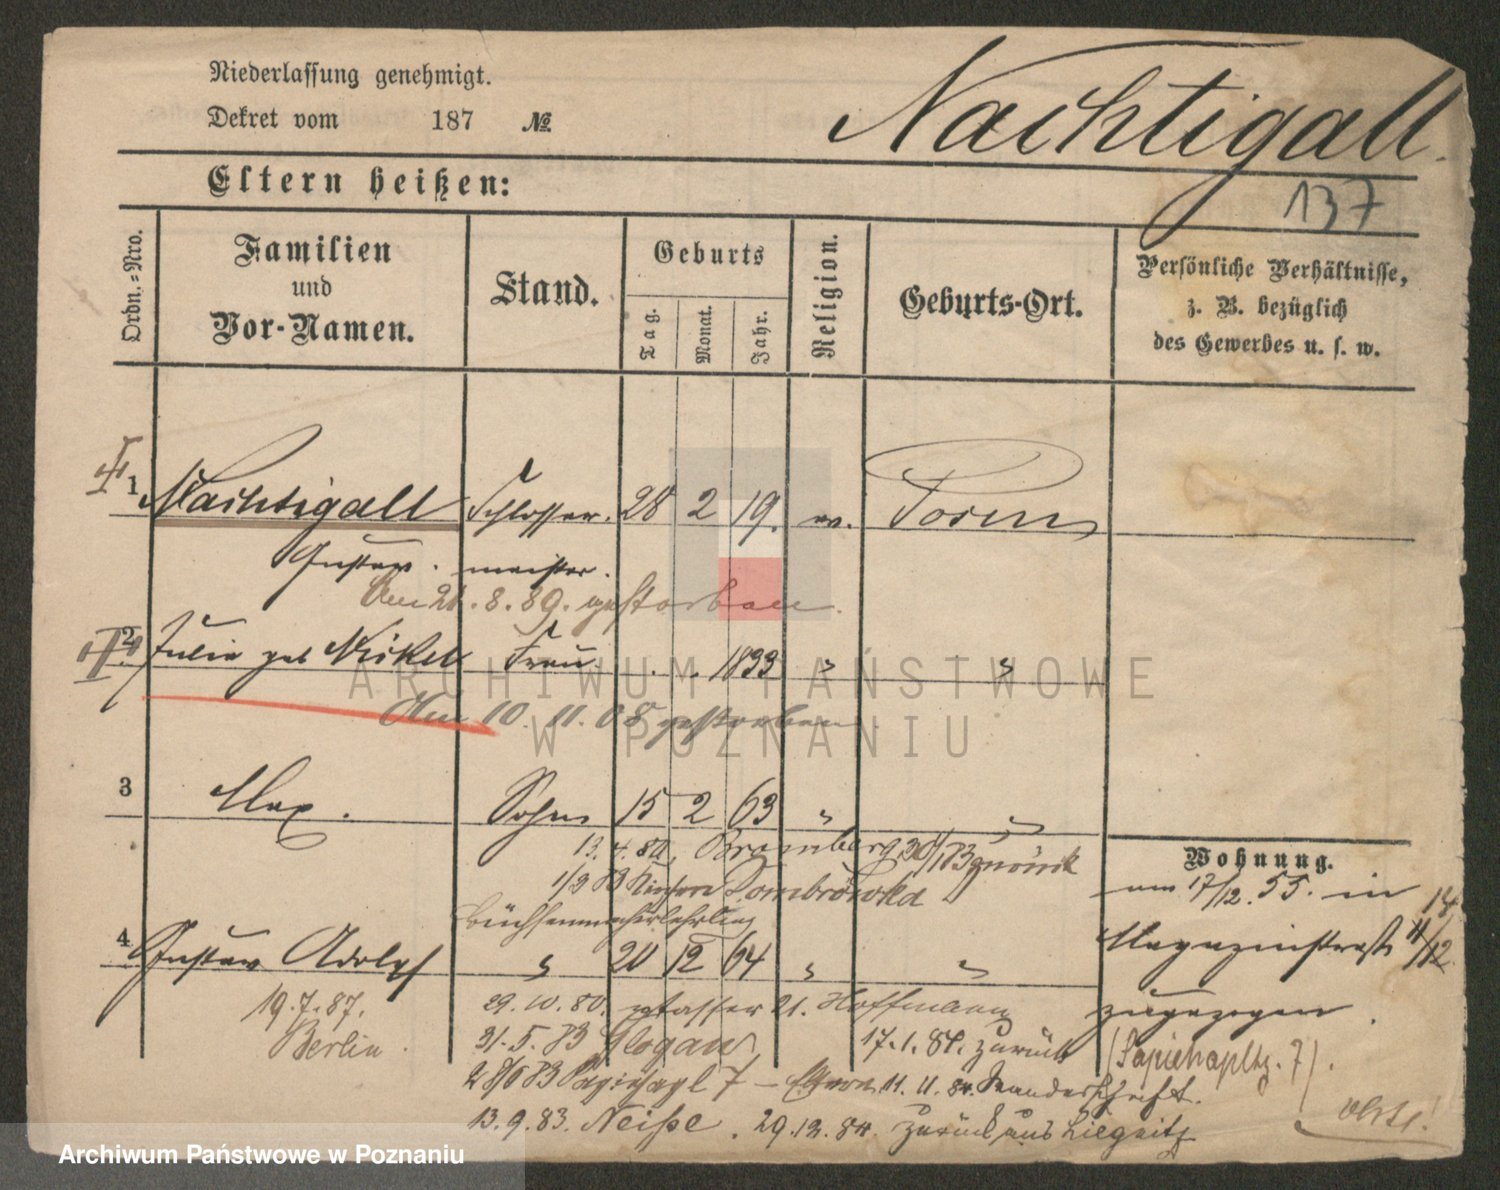 Niederlassung genehmigt.
Dekret vom 187 №
Nachtigall.
137
Eltern heißen:
Ordn.-Nro.
Familien
und
Vor-Namen.
Stand.
Geburts
Tag.
Monat.
Jahr.
Religion.
Geburts-Ort.
Persönliche Verhältnisse,
z. B. bezüglich
des Gewerbes u. s. w.
1 Nachtigall Schlosser. 28 2 19. ev. Posen
Gustav. meister.
Am 21.8.89. gestorben.
2. Julie geb Nickel Frau . . 1833 " "
Am 10. 11. 08 gestorben
3 Max. Sohn 15 2 63 " "
13. 4. 80, Bromberg
Dombrowka
Büchsenmacherlehrling
4 Gustav Adolf " 20 12 64 " "
19.7.87.
Berlin.
29.10.80. 21. Hoffmann
31.5.83 Glogau 17.1.84. zurück
7 – 11.11.84. Wanderschaft.
13.9.83. Neiße. 29.12.84. zurück aus Liegnitz
Wohnung.
am 17/12. 55. in
Magazinstraße 14
11/12
zugezogen.
(Sapiehapltz. 7).
Archiwum Państwowe w Poznaniu
ARCHIWUM PAŃSTWOWE
W POZNANIU